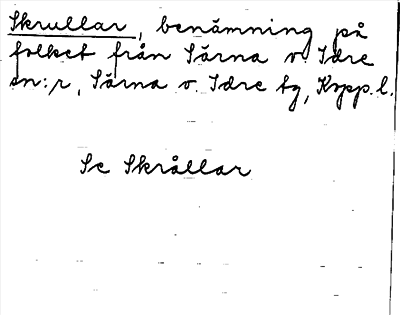 Skrullar, benämning på
folket från Särna o. Idre
sn:r, Särna o. Idre tg, Kopp.l.
Se Skrållar